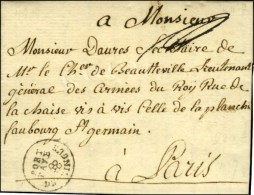 a Monsieur
Monsieur Daures Secrétaire de
Mr le Cher de Beautteville Lieutenant
général des Armées du Roy Rue de
la chaise vis à vis Celle de la planche
fauxbourg St germain
à Paris